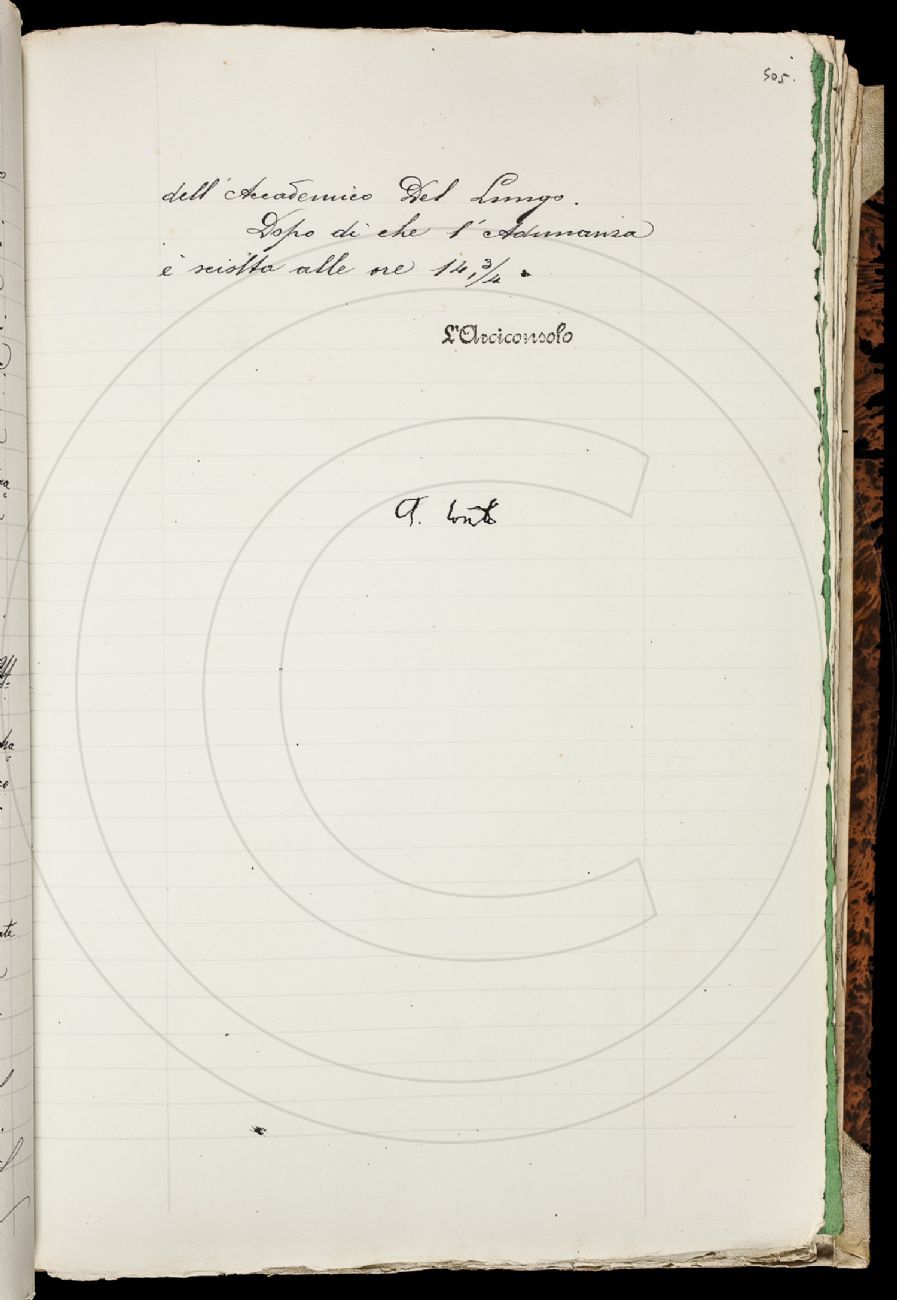 505.
dell'Accademico Del Lungo.
Dopo di che l'Adunanza
è sciolta alle ore 14,3/4.
L'Arciconsolo
A. Conti